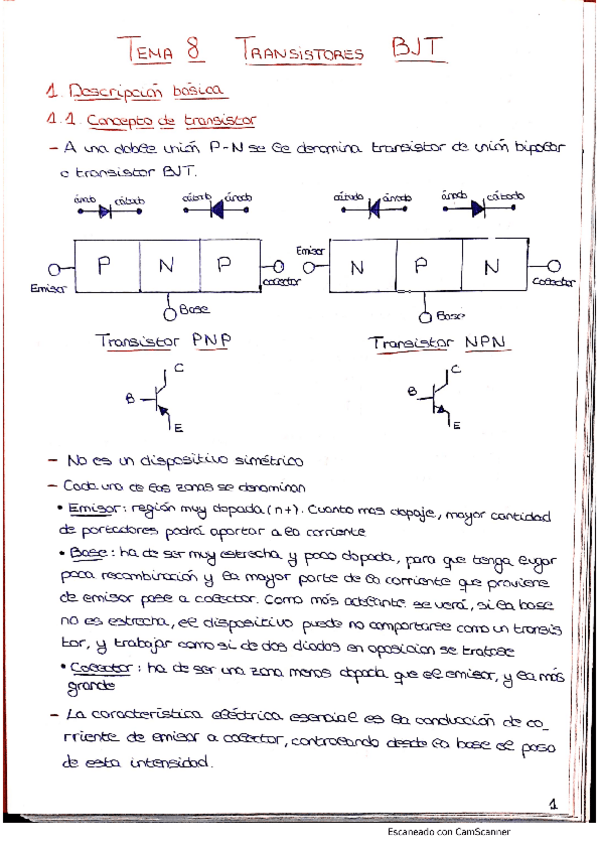 TEMA 8 TRANSISTORES BJT
1. Descripción básica
1.1. Concepto de transistor
- A una doble unión P-N se le denomina transistor de unión bipolar
o transistor BJT.
ánodo cátodo cátodo ánodo cátodo ánodo ánodo cátodo
P N P
Emisor
colector
Base
Emisor
N P N
Colector
Base
Transistor PNP Transistor NPN
C
B
E
C
B
E
- No es un dispositivo simétrico
- Cada una de las zonas se denominan
• Emisor: región muy dopada (n+). Cuanto mas dopaje, mayor cantidad
de portadores podrá aportar a la corriente
• Base: ha de ser muy estrecha y poco dopada, para que tenga lugar
poca recombinación y la mayor parte de la corriente que proviene
de emisor pase a colector. Como más adelante se verá, si la base
no es estrecha, el dispositivo puede no comportarse como un transis
tor, y trabajar como si de dos diodos en oposicion se tratase
• Colector: ha de ser una zona menos dopada que el emisor, y la más
grande
- La característica eléctrica esencial es la conducción de co_
rriente de emisor a colector, controlando desde la base el paso
de esta intensidad.
1
Escaneado con CamScanner